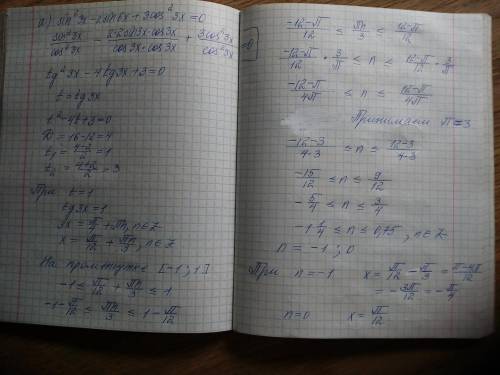 а) sin² 3x - 2sin 6x + 3cos² 3x = 0
sin² 3x / cos² 3x - 2·2sin 3x·cos 3x / cos 3x·cos 3x + 3cos² 3x / cos² 3x = 0
tg² 3x - 4 tg 3x + 3 = 0
t = tg 3x
t² - 4t + 3 = 0
D = 16 - 12 = 4
t₁ = (4-2)/2 = 1
t₂ = (4+2)/2 = 3
При t = 1
tg 3x = 1
3x = π/4 + πn, n ∈ Z
x = π/12 + πn/3, n ∈ Z
На промежутке [-1; 1]
-1 ≤ π/12 + πn/3 ≤ 1
-1 - π/12 ≤ πn/3 ≤ 1 - π/12
(-12-π)/12 ≤ πn/3 ≤ (12-π)/12
(-12-π)/12 · 3/π ≤ n ≤ (12-π)/12 · 3/π
(-12-π)/4π ≤ n ≤ (12-π)/4π
Принимаем π = 3
(-12-3)/4·3 ≤ n ≤ (12-3)/4·3
-15/12 ≤ n ≤ 9/12
-5/4 ≤ n ≤ 3/4
-1 1/4 ≤ n ≤ 0,75, n ∈ Z
n = -1; 0
При n = -1 x = π/12 - π/3 = (π-4π)/12
= -3π/12 = -π/4
n = 0 x = π/12